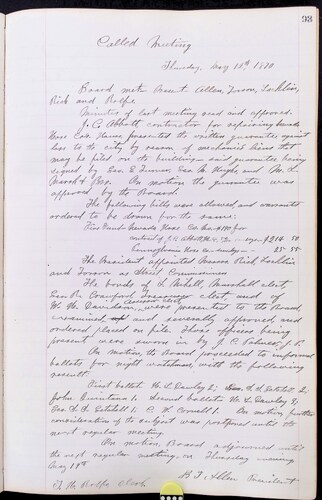 93
Called Meeting
Thursday, May 13th 1880
Board met. Present Allen, Turson, Locklin,
Rich and Rolfe.
Minutes of last meeting read and approved.
J. C. Abbott, contractor for repairing Nevada
Hose Co's House presented the written guarantee against
loss to the city by reason of mechanic's liens that
may be filed on the building, said guarantee being
signed by Geo. E. Turner, Geo. M. Hughes and M. L.
Marsh & Bro. On motion the guarantee was
approved by the Board.
The following bills were allowed, and warrants
ordered to be drawn for the same:
Fire Fund Nevada Hose Co.
contract of J. C. Abbott 214 50
Pennsylvania Hose Co. 25 55
The President appointed Messrs Rich, Locklin
and Turson as Street Commissioners
The bonds of Marshall elect
Geo. R. Crawford Treasurer elect, and of
W. D. Davidson, were presented to the Board
examined, and severally approved and
ordered placed on file. Those officers being
present were sworn in by J. C. Palmer, J. P.
On motion, the Board proceeded to informal
ballots for night watchman, with the following
result:
First ballot W. L. Dawley 2;
John Quintana 1; Second ballot W. L. Dawley 2;
1; C. W. Cornell 1. On motion further
consideration of the subject was postponed until the
next regular meeting.
On motion, Board adjourned until
the next regular meeting, on Thursday evening
May
T. H. Rolfe Clerk
B. F. Allen President